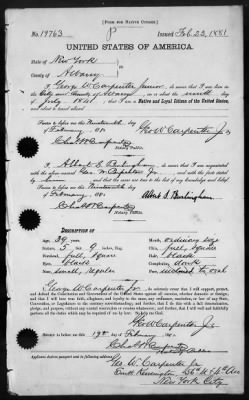 [FORM FOR NATIVE CITIZEN.]
No. 19763 Issued Feb. 23, 1881
UNITED STATES OF AMERICA.
STATE OF New York
COUNTY OF Albany
I George W Carpenter Junior, do swear that I was born in the
City and County of Albany on or about the ninth day of
July 1841; that I am a Native and Loyal Citizen of the United States,
and about to travel abroad.
Sworn to before me this Nineteenth day
of February, 188
Geo W Carpenter Jr
Chas H Carpenter
Notary Public.
I Albert S Burlingham, do swear that I am acquainted with
the above-named Geo. W Carpenter Jr and with the facts stated
by him, and that the same are true to the best of my knowledge and belief.
Sworn to before me this Nineteenth day
of February, 188
Albert S Burlingham
Chas H Carpenter
Notary Public.
DESCRIPTION OF
Age: 39 years.
Stature: 5 feet 9 inches, Eng.
Forehead: full, square
Eyes: black
Nose: small, regular
Mouth: ordinary size
Chin: full, square
Hair: black
Complexion: dark
Face: inclined to oval
I, George W Carpenter Jr do solemnly swear that I will support, protect, and
defend the Constitution and Government of the United States against all enemies, whether domestic or foreign;
and that I will bear true faith, allegiance, and loyalty to the same, any ordinance, resolution, or law of any State,
Convention, or Legislature to the contrary notwithstanding; and further, that I do this with a full determination,
pledge, and purpose, without any mental reservation or evasion whatsoever; and further, that I will well and
faithfully perform all the duties which may be required of me by law: So help me God.
Geo W Carpenter Jr
Sworn to before me this 19th day of February, 188
Chas H Carpenter
Applicants desires passport sent to following address:
Geo. W. Carpenter Jr
New York City